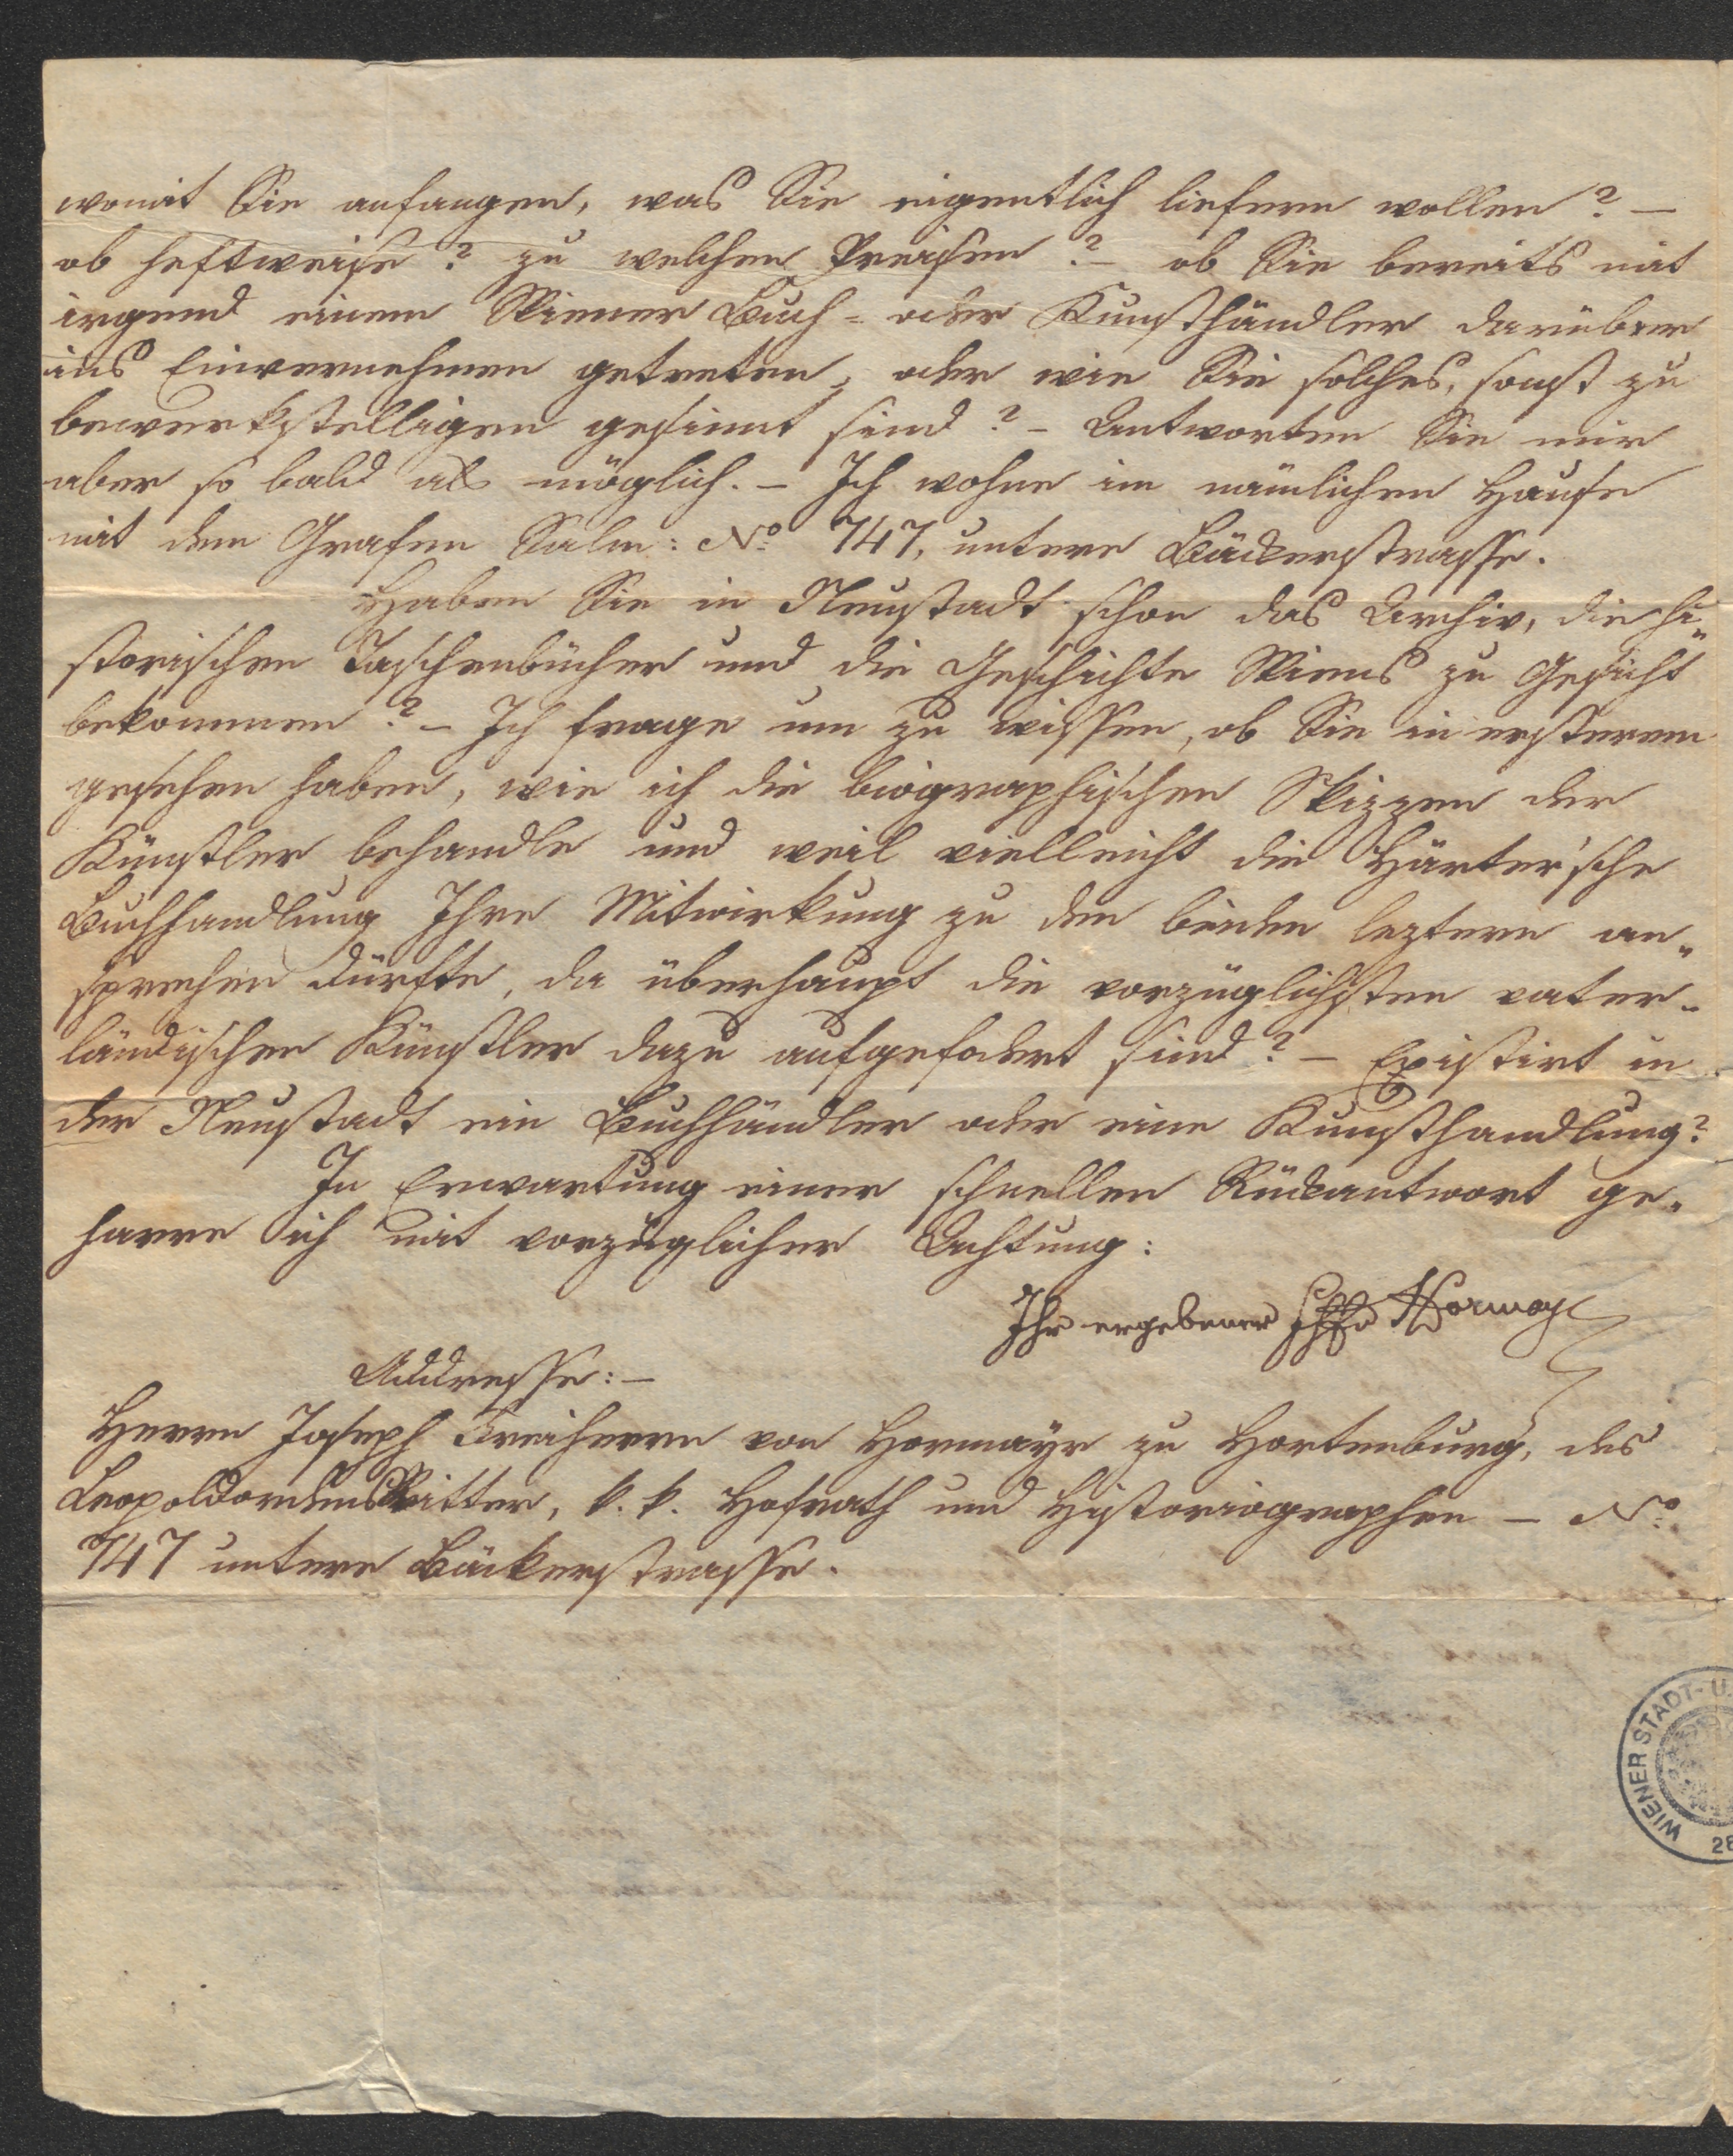 womit Sie anfangen, was Sie eigentlich liefern wollen? –
ob heftweise? zu welchen Preisen? – ob Sie bereits mit
irgend einem Wiener Buch- oder Kunsthändler darüber
ins Einvernehmen getreten, oder wie Sie solches, sonst zu
bewerkstelligen gesinnt sind? – Antworten Sie mir
aber so bald als möglich. – Ich wohne im nämlichen Hause
mit dem Grafen Salm: No 747, untere Bäckerstrasse.
Haben Sie in Neustadt schon das Archiv, die hi„
storischen Taschenbücher und die Geschichte Wiens zu Gesicht
bekommen? – Ich frage um zu wissen, ob Sie in ersterem
gesehen haben, wie ich die biographischen Skizzen der
Künstler behandle und weil vielleicht die Härter'sche
Buchhandlung Ihre Mitwirkung zu den beiden leztern an„
sprechen dürfte, da überhaupt die vorzüglichsten vater„
ländischen Künstler dazu aufgefodert sind? – Existirt in
der Neustadt ein Buchhändler oder eine Kunsthandlung?
In Erwartung einer schnellen Rückantwort ge„
harre ich mit vorzüglicher Achtung:
Ihr ergebener Hormayr
Addresse: –
Herrn Joseph Freiherrn von Hormayr zu Hortenburg, des
Leopoldordens Ritter, k. k. Hofrath und Historiographen – No
747 untere Bäckerstrasse.
WIENER STADT- U.
28